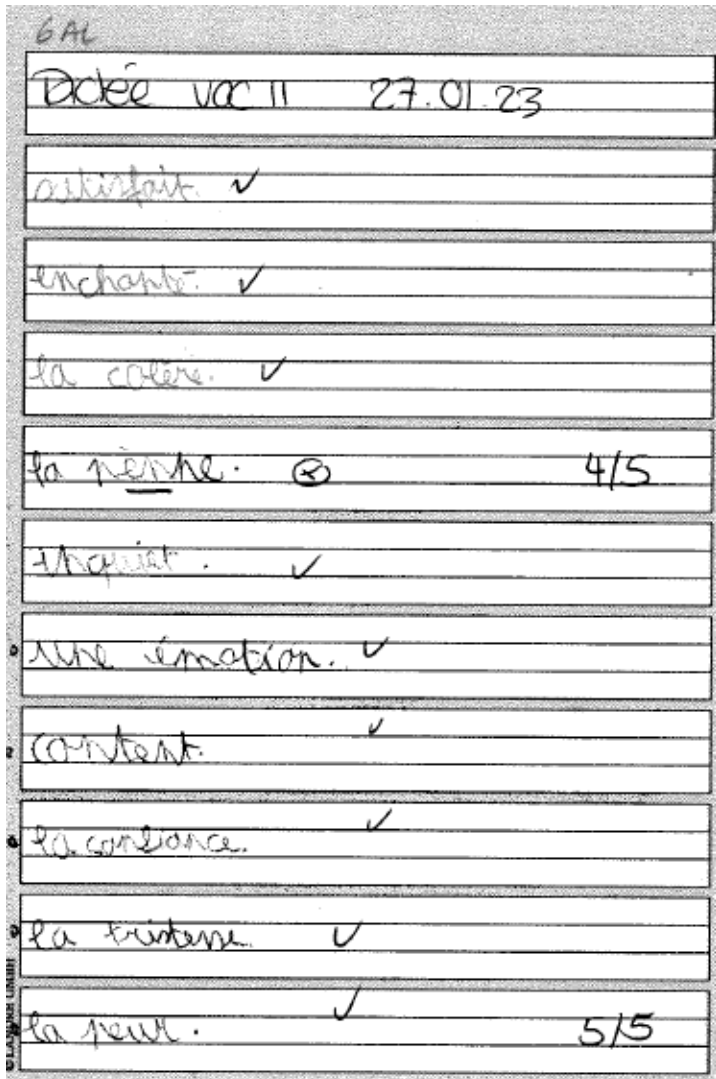 6AL
Dictée voc 11 27.01.23
satisfait. ✓
enchanté. ✓
la colère. ✓
la 4/5
inquiet. ✓
une émotion. ✓
content. ✓
la confiance. ✓
la tristesse ✓
la peur. ✓ 5/5